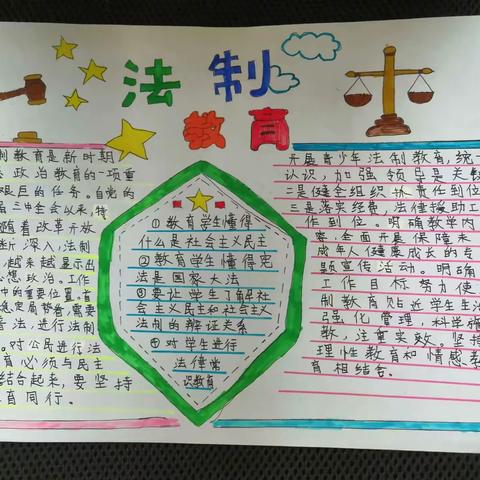 法制
教育
制教育是新时期
政治教育的一项重
艰巨的任务。自党的
届三中全会以来,特
随着改革开放
断深入,法制
越来越显示出
想政治。工作
中的重要位置。首
稳定局势着,需要
善法,进行法制
。对公民进行法
育必须与民主
结合起来,要坚持
育同行。
①教育学生懂得
什么是社会主义民主
②教育学生懂得宪
法是国家大法
③要让学生了解社会
主义民主和社会主义
法制的辩证关系
④对学生进行
法律常
识教育
开展青少年法制教育,统一
认识,加强领导是关键
二是健全组织,责任到位
三是落实经费,法律援助工
作到位。明确教学内
容,全面开展保障未
成年人健康成长的专
题宣传活动。明确
工作目标努力使
制教育贴近学生生
强化管理,科学
数,注重实效。坚持
理性教育和情感教
育相结合。